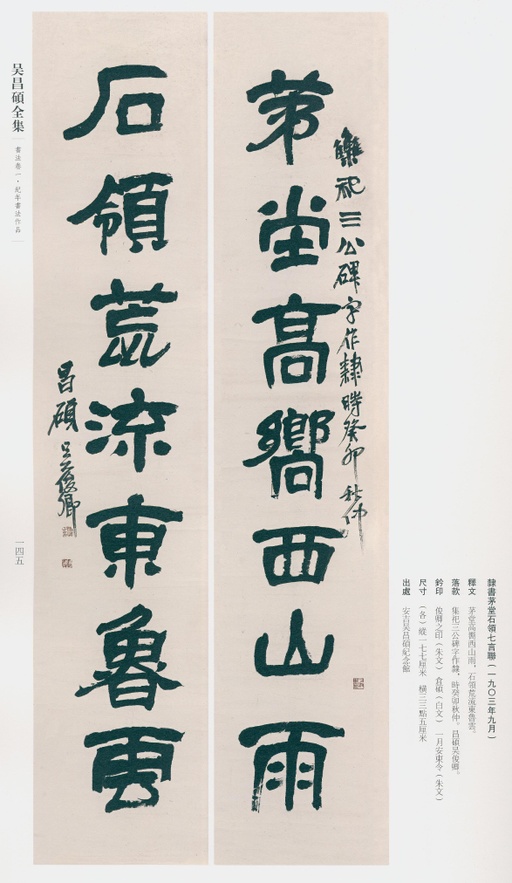 雧祀三公碑字作隸時癸卯秋仲
茅堂高嚮西山雨
石領荒流東魯雲
昌碩吴俊卿
隸書茅堂石領七言聯(一九〇三年九月)
釋文 茅堂高嚮西山雨,石領荒流東魯雲。
落款 集祀三公碑字作隸,時癸卯秋仲。昌碩吴俊卿。
鈐印 俊卿之印(朱文) 倉碩(白文) 一月安東令(朱文)
尺寸 (各)縱一七七厘米 橫三三點五厘米
出處 安吉吴昌碩紀念館
吴昌碩全集
書法卷一·紀年書法作品
一四五